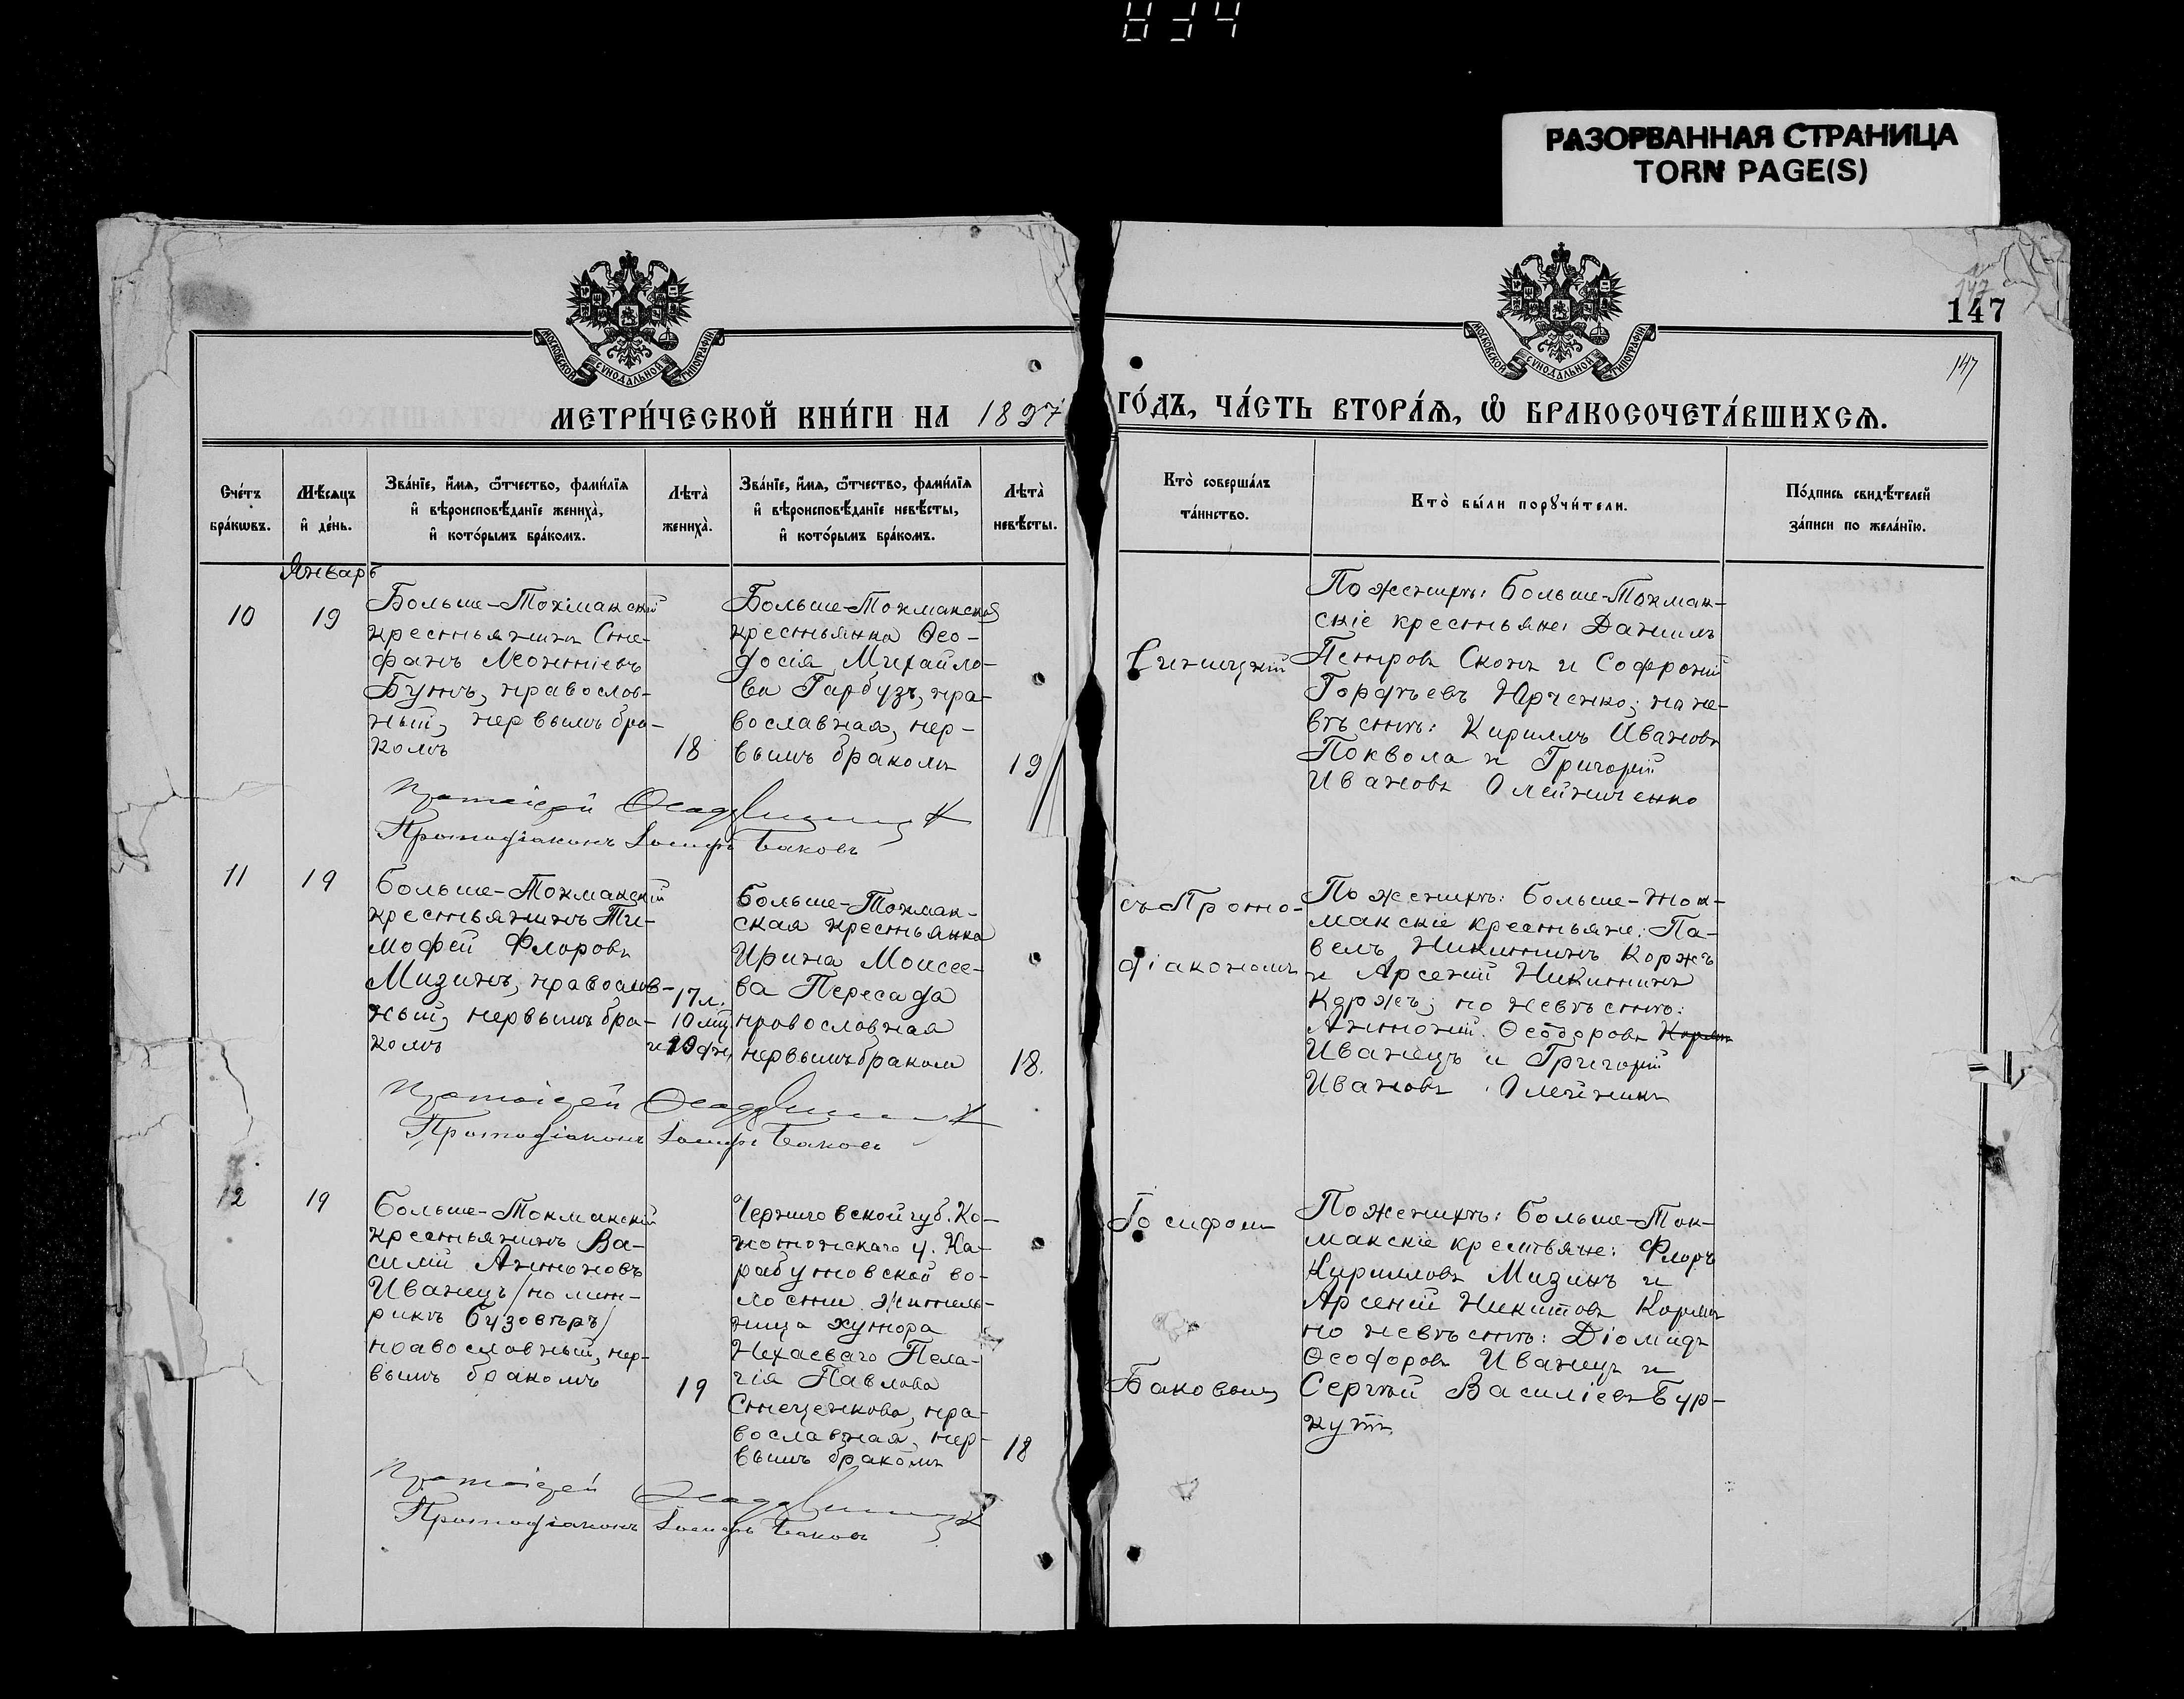 834
РАЗОРВАННАЯ СТРАНИЦА
TORN PAGE(S)
147
147
МОСКОВСКОЙ СѴНОДАЛЬНОЙ ТИПОГРАФІИ
МОСКОВСКОЙ СѴНОДАЛЬНОЙ ТИПОГРАФІИ
МЕТРИ́ЧЕСКОЙ КНИ́ГИ НА 1897 ГО́ДЪ, ЧА́СТЬ ВТОРА́Ѧ, Ѡ҆ БРАКОСОЧЕТА́ВШИХСѦ.
Сче́тъ
бра́кѡвъ.
Мѣ́сяцъ
и҆ де́нь.
Зва́нїе, и҆́мѧ, ѻ҆́тчество, фами́лїѧ
и҆ вѣроисповѣ́данїе жениха̀,
и҆ кото́рымъ бра́комъ.
Лѣта̀
жениха̀.
Зва́нїе, и҆́мѧ, ѻ҆́тчество, фами́лїѧ
и҆ вѣроисповѣ́данїе невѣ́сты,
и҆ кото́рымъ бра́комъ.
Лѣта̀
невѣ́сты.
Кто̀ соверша́лъ
та́инство.
Кто̀ бы́ли порꙋчи́тели.
По́дпись свидѣ́телей
за́писи по жела́нїю.
Январь
10
19
Больше-Токмакскій
крестьянинъ Сте-
фанъ Леонтіевъ
Бутъ, православ-
ный, первымъ бра-
комъ
18
Больше-Токмакская
крестьянка Ѳео-
досія Михайло-
ва Гарбузъ, пра-
вославная, пер-
вымъ бракомъ
19
Синицкій
По женихѣ: Больше-Токмак-
скіе крестьяне: Даніилъ
Петровъ Скокъ и Софроній
Гордѣевъ Юрченко; по не-
вѣстѣ: Кириллъ Ивановъ
Поквола и Григорій
Ивановъ Олейниченко
Протоіерей
Протодіаконъ Іосифъ Баковъ
11
19
Больше-Токмакскій
крестьянинъ Ти-
мофей Флоровъ
Мизинъ, православ-
ный, первымъ бра-
комъ
17 л.
10 мц.
Больше-Токмак-
ская крестьянка
Ирина Моисее-
ва Пересада
православная
первымъ бракомъ
18.
съ Прото-
діакономъ
По женихѣ: Больше-Ток-
макскіе крестьяне: Па-
велъ Никитинъ Коржъ
и Арсеній Никитинъ
Коржъ; по невѣстѣ:
Антоній Ѳеодоровъ
Иванецъ и Григорій
Ивановъ Олейникъ
Протоіерей
Протодіаконъ Іосифъ Баковъ
12
19
Больше-Токмакскій
крестьянинъ Ва-
силій Антоновъ
Иванецъ /по мет-
рикѣ Бузовѣръ/
православный, пер-
вымъ бракомъ
19
Черниговской губ. Ко-
нотопскаго у. Ка-
рабутовской во-
лости жительница
хутора
Нехаеваго Пела-
гія Павлова
Стеценкова, пра-
вославная, пер-
вымъ бракомъ
18
Іосифомъ
Баковымъ
По женихѣ: Больше-Ток-
макскіе крестьяне: Флоръ
Кирилловъ Мизинъ и
Арсеній Никитовъ Коржъ
по невѣстѣ: Діомидъ
Ѳеодоровъ Иванецъ и
Сергѣй Василіевъ Бур-
кутъ
Протоіерей
Протодіаконъ Іосифъ Баковъ